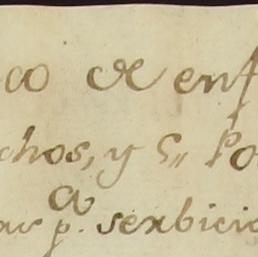 co de enf
chos, y S,, Po
p.a serbicio